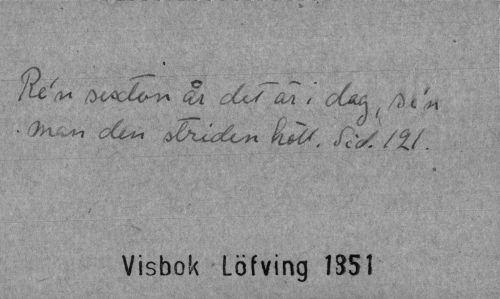 Re'n sexton år det är i dag, se'n
man den striden höll. Sid. 121.
Visbok Löfving 1851